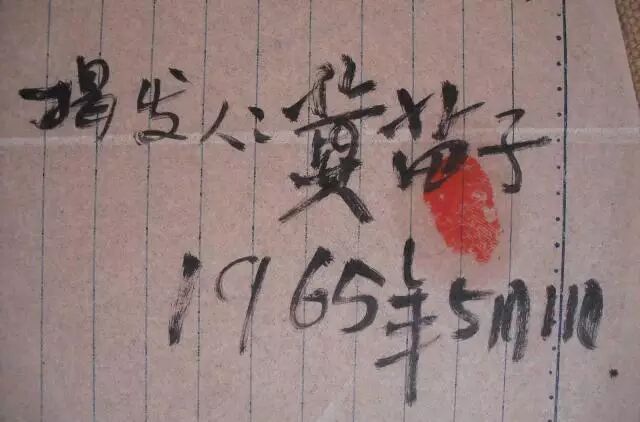 揭发人：黄苗子
1965年5月11日